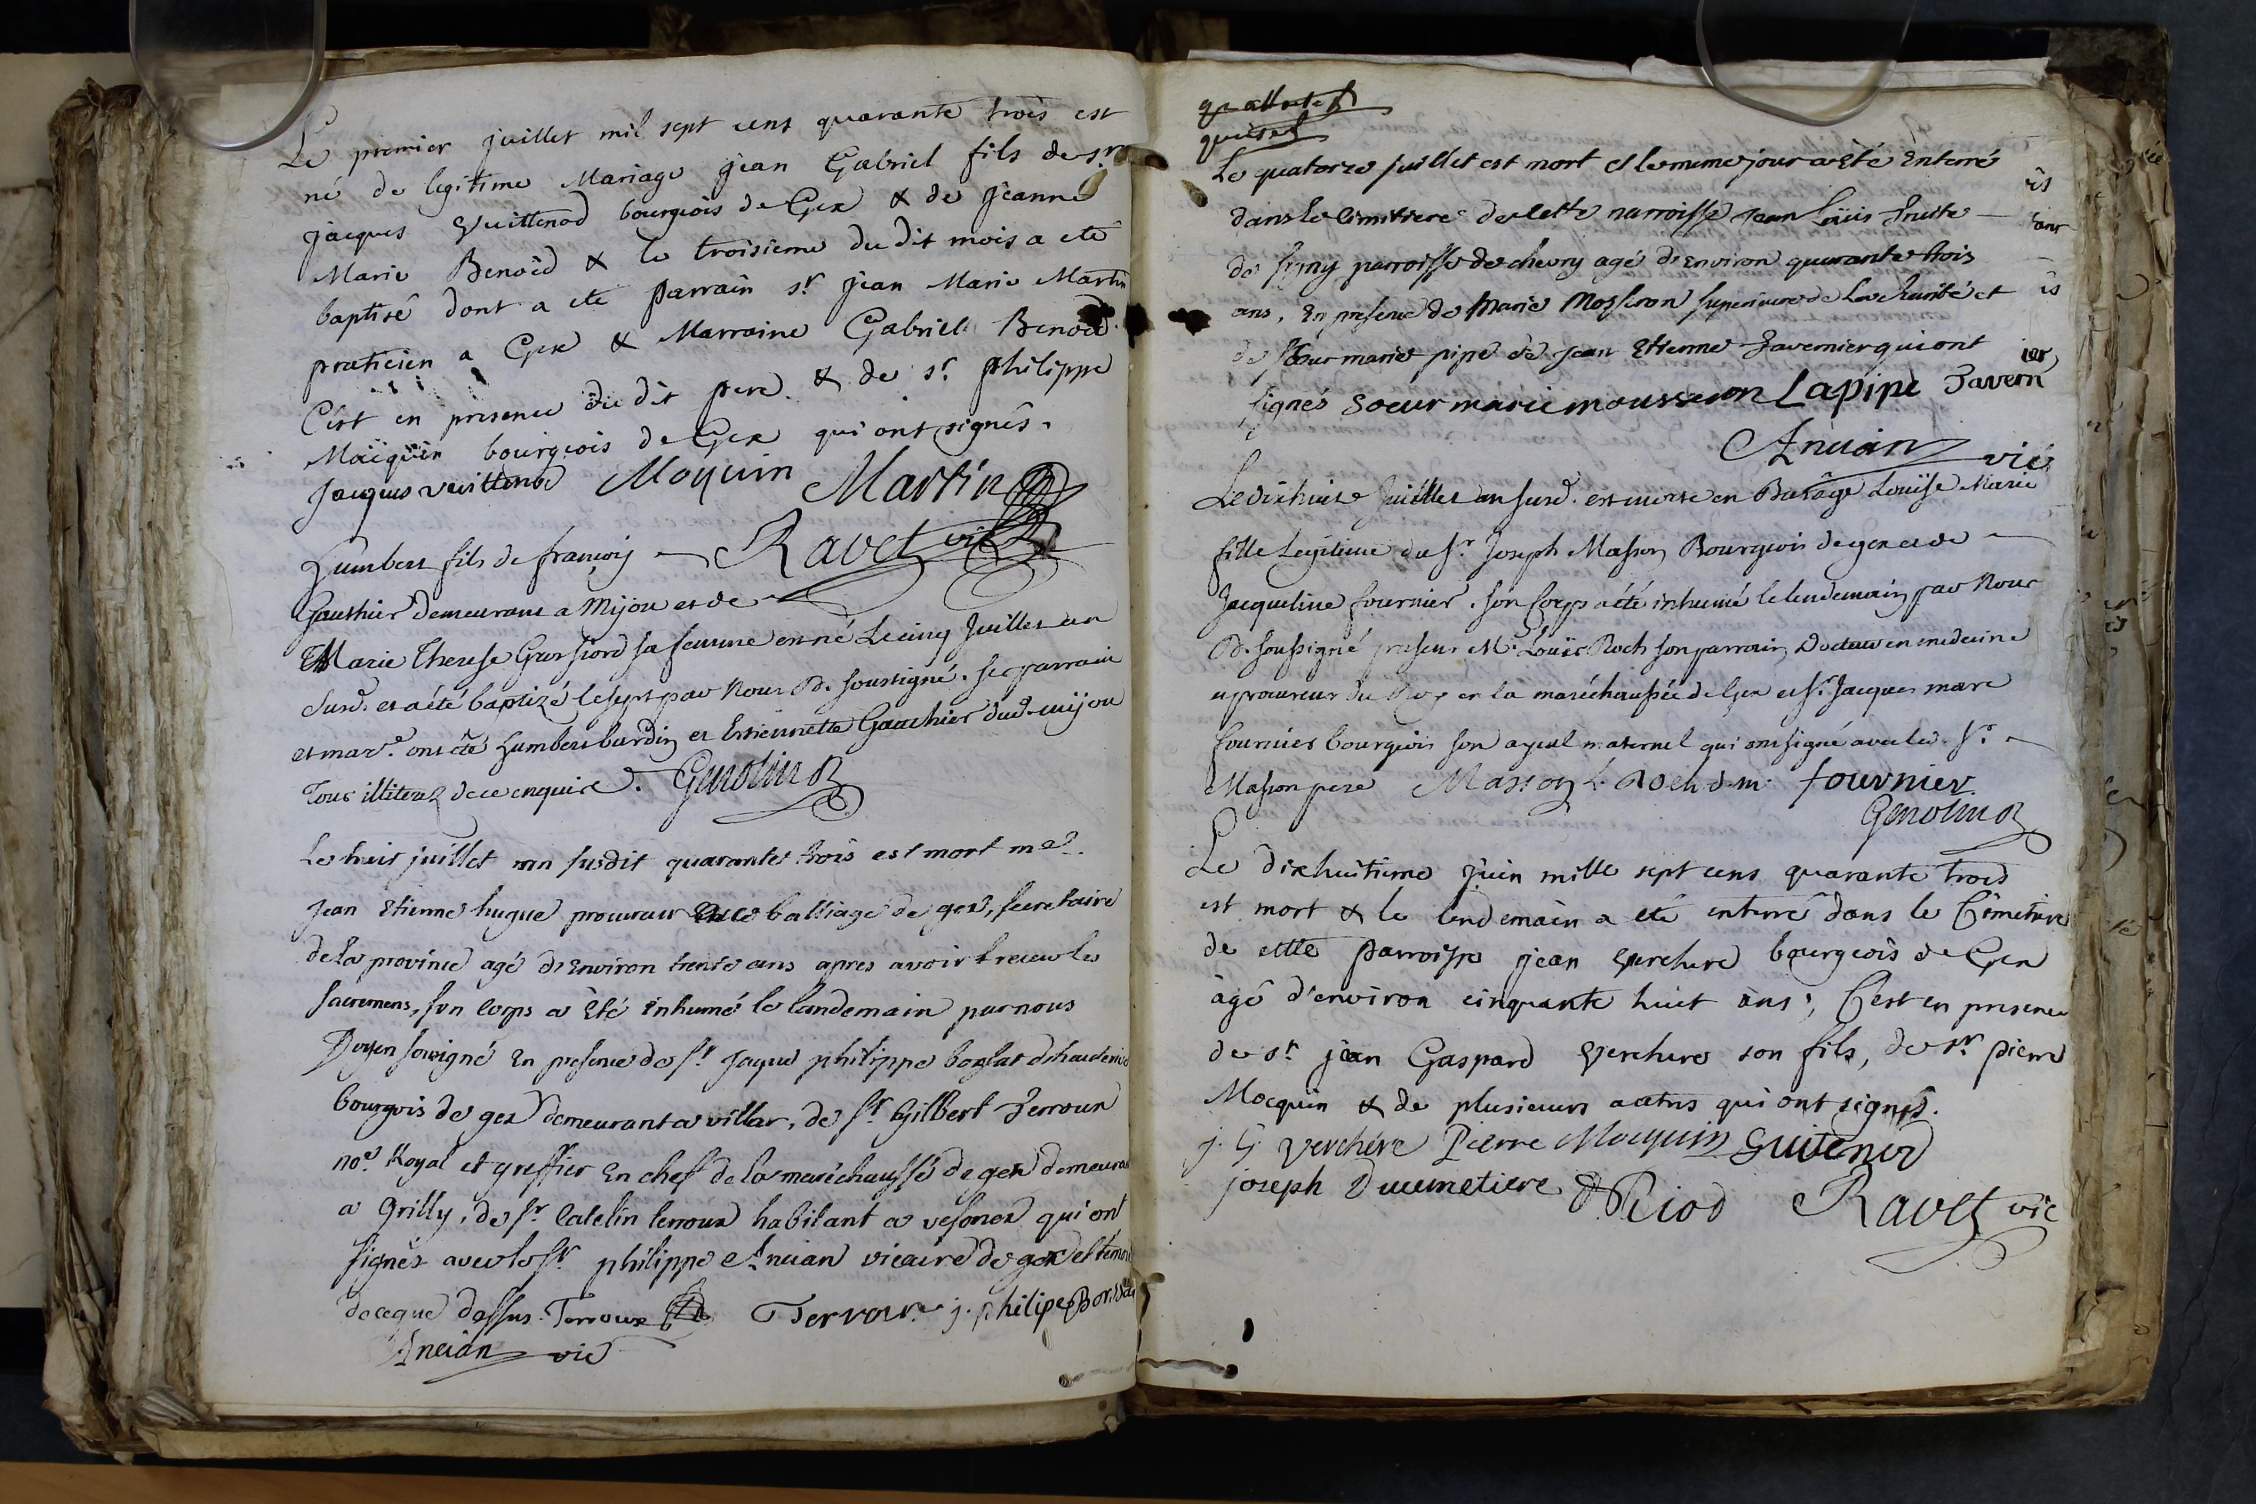 Le premier juillet mil sept cens quarante trois est
né de legitime Mariage jean Gabriel fils de sr.
jacques Vuittenod bourgeois de Gex & de jeanne
Marie Benoid & le troisieme du dit mois a eté
baptisé dont a eté parrain sr. jean Marie Martin
praticien a Gex & Marraine Gabriele Benoid
C'est en presence du dit pere & de sr. philippe
Mocquin bourgeois de Gex qui ont signés.
jacques vuittenod Moquin Martin
Ravet vic
humbert fils de françois
Gauthier demeurant a Mijou et de
Marie Therese Grosfiord sa femme est né Le cinq Juillet an
susd. et a été baptizé le sept par Nous D. soussigné. ses parrain
et marr.e ont été humbert burdin et Estiennette Gauthier dud. mijou
Tous illiterez de ce enquis. Genolin D
Le huit juillet an susdit quarante trois est mort me.
jean Etienne hugue procureur au balliage de gex, secretaire
de la province agé d'Environ trente ans apres avoir receu les
sacremens, son corps a Eté inhumé le landemain par nous
Doyen sousigné En presence de sr. jaque philippe borsat
bourgois de gex demeurant a villar, de sr. Gilbert Terroux
noe. Royal et greffier En chef de la maréchaussé de gex demeurant
a Grilly, de sr. Catelin terroux habitant a vesonex qui ont
signés avec le sr. philippe Ancian vicaire de gex et temoin
de ceque dessus. Terroux Terroux j. philipe Borssat
Ancian vic
Le quatorze juillet est mort et le meme jour a Eté Enterré
dans le Cimitiere de cette parroisse jean Loüis Fruite
de parroisse de chevry agé d'Environ quarante trois
ans, En presence de Marie Mosseron superieure de La charité et
de soeur marie pipe de jean Etienne Tavernier qui ont
signés soeur marie mousseron Lapipe Tavernier
Ancian vic
Le dixhuit Juillet an susd. est morte en Basâge Loüise Marie
fille Legitime du sr. Joseph Masson Bourgeois de gex et de
Jacqueline fournier. son Corps a été inhumé le lendemain par Nous
D. soussigné presens Mr. Loüis Roch son parrain Docteur en medecine
et procureur du Roy en la maréchaussée de Gex et sr. Jacques marc
fournier bourgeois son ayeul maternel qui ont signé avec led. sr.
Masson pere Masson L. Roch d.m. fournier
Genolin D
Le dixhuitieme juin mille sept cens quarante trois
est mort & le lendemain a eté enterré dans le Cimetiere
de cette parroisse jean verchere bourgeois de Gex
âgé d'environ cinquante huit ans; C'est en presence
de sr. jean Gaspard verchere son fils, de sr. pierre
Mocquin & de plusieurs autres qui ont signés.
j. G verchére Pierre Mocquin Guitenod
joseph Ducimetiere Piod Ravet vic